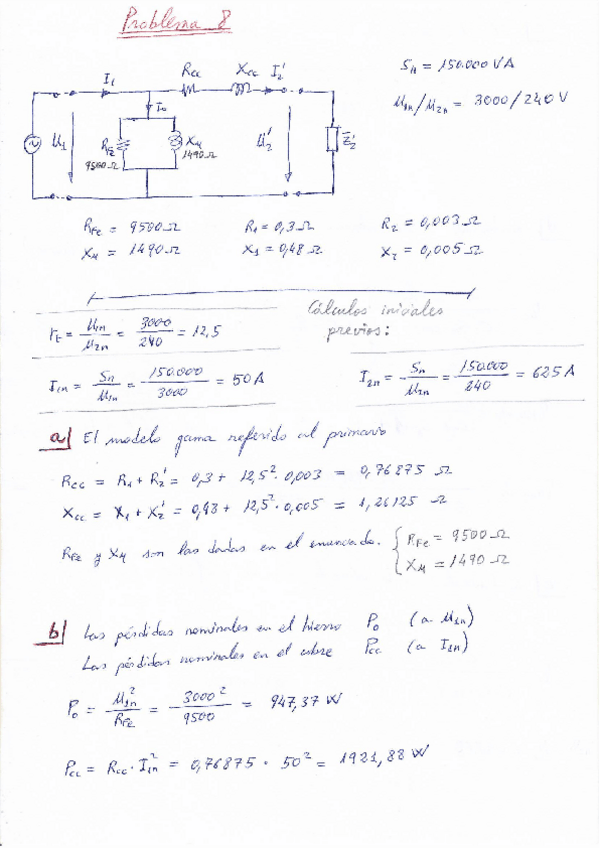 Problema 8
Sn = 150.000 VA
U1n/U2n = 3000/240 V
I1 Rcc Xcc I2'
Io
U1 RFe 9500Ω XM 1490Ω U2' Z2'
RFe = 9500Ω R1 = 0,3Ω R2 = 0,003Ω
XM = 1490Ω X1 = 0,48Ω X2 = 0,005Ω
Cálculos iniciales
previos:
rt = U1n/U2n = 3000/240 = 12,5
I1n = Sn/U1n = 150.000/3000 = 50 A
I2n = Sn/U2n = 150.000/240 = 625 A
a) El modelo gama referido al primario
Rcc = R1 + R2' = 0,3 + 12,5² · 0,003 = 0,76875 Ω
Xcc = X1 + X2' = 0,48 + 12,5² · 0,005 = 1,26125 Ω
RFe y XM son las dadas en el enunciado. { RFe = 9500Ω
XM = 1490Ω
b) Las pérdidas nominales en el hierro Po (a U1n)
Las pérdidas nominales en el cobre Pcc (a I1n)
Po = U1n²/RFe = 3000²/9500 = 947,37 W
Pcc = Rcc · I1n² = 0,76875 · 50² = 1921,88 W